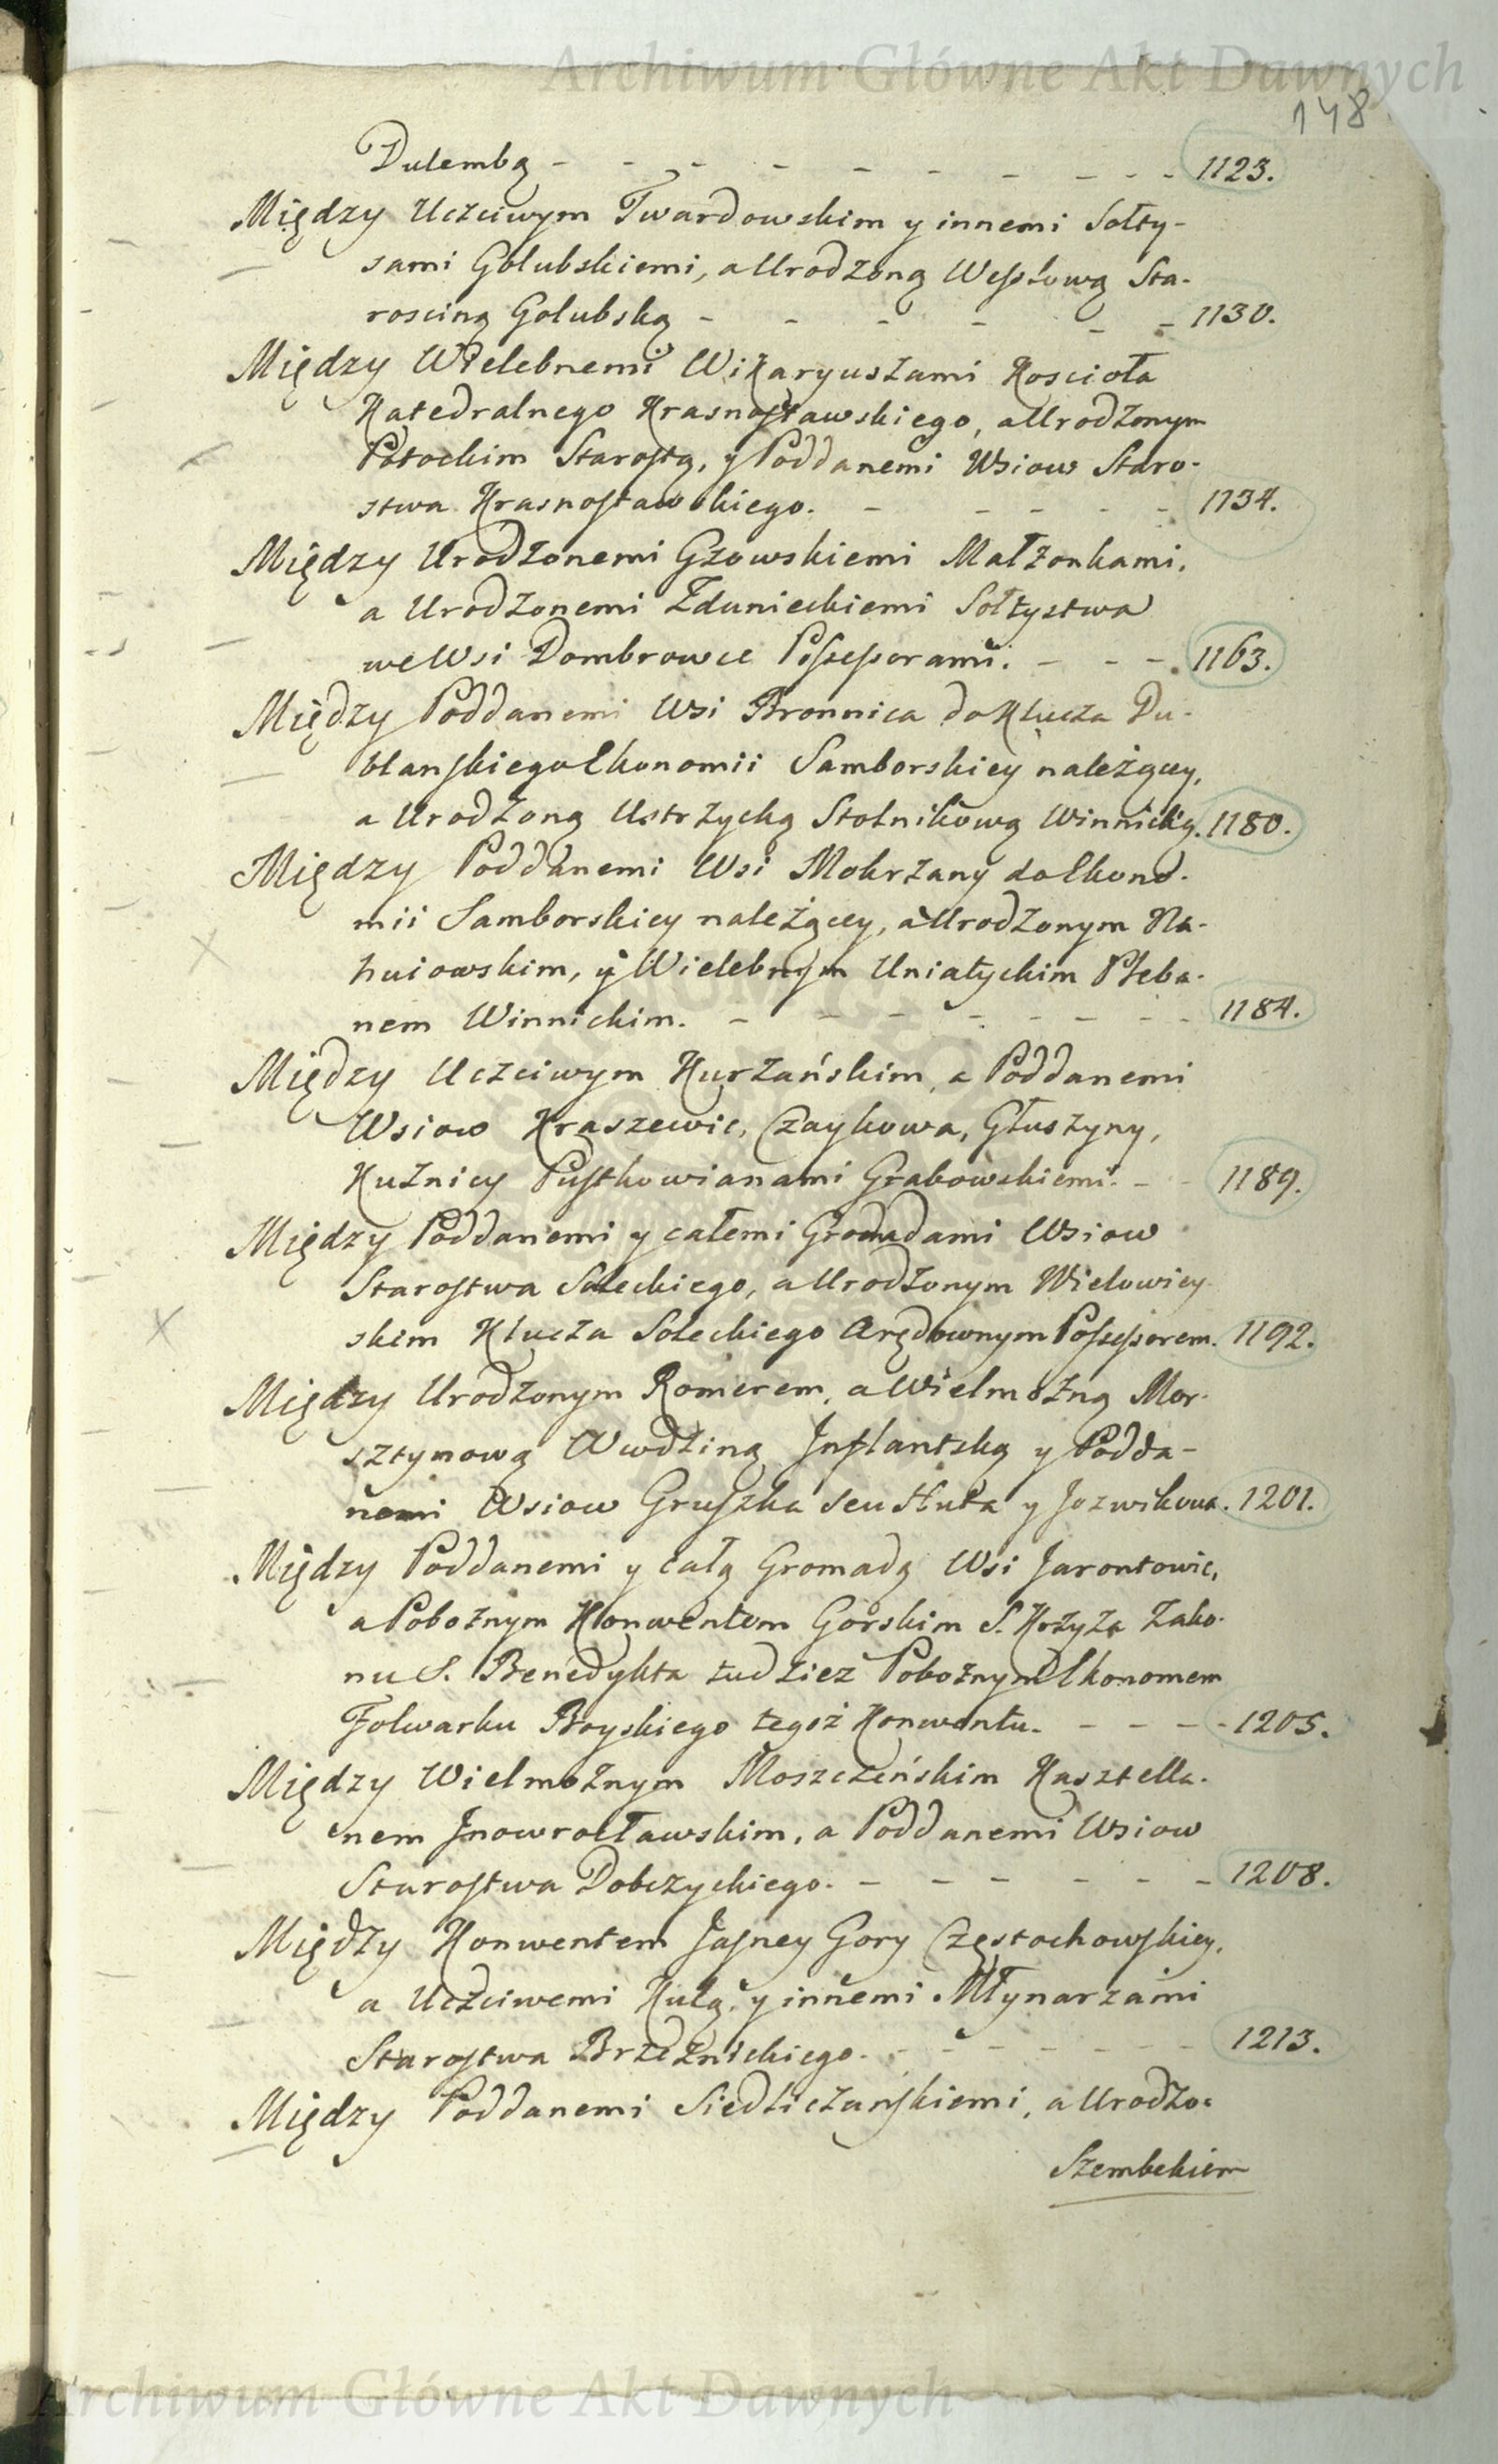 Archiwum Główne Akt Dawnych
148
Dulembą - - - - - - - - - 1123.
Między Uczciwym Twardowskim y innemi Sołty-
sami Golubskiemi, a Urodzoną Wesslową Sta-
rosciną Golubską - - - - - - 1130.
Między Wielebnemi Wikaryuszami Koscioła
Katedralnego Krasnostawskiego, a Urodzonym
Potockim Starostą, y Poddanemi Wsiow Staro-
stwa Krasnostawskiego. - - - - - 1134.
Między Urodzonemi Gzowskiemi Małżonkami,
a Urodzonemi Zdunieckiemi Sołtystwa
we Wsi Dombrowce Possessorami. - - - 1163.
Między Poddanemi Wsi Bronnica do Klucza Du-
blanskiego Ekonomii Samborskiey należącey,
a Urodzoną Ustrzycką Stolnikową Winnicką. 1180.
Między Poddanemi Wsi Mokrzany do Ekono-
mii Samborskiey należącey, a Urodzonym Na-
huiowskim, y Wielebnym Uniatyckim Pleba-
nem Winnickim. - - - - - - - 1184.
Między Uczciwym Kurzańskim, a Poddanemi
Wsiow Kraszewic, Czaykowa, Głuszyny,
Kuźnicy Pustkowianami Grabowskiemi. - - 1189.
Między Poddanemi y całemi Gromadami Wsiow
Starostwa Soleckiego, a Urodzonym Wielowiey-
skim Klucza Soleckiego Arędownym Possessorem. 1192.
Między Urodzonym Romerem, a Wielmożną Mor-
sztynową Wwdziną Inflantską y Podda-
nemi Wsiow Gruszka seu Huta y Jozwikowa. 1201.
Między Poddanemi y całą Gromadą Wsi Jarontowic,
a Pobożnym Konwentem Gorskim S. Krzyża Zako-
nu S. Benedykta tudzież Pobożnym Ekonomem
Folwarku Boyskiego tegoż Konwentu. - - - - 1205.
Między Wielmożnym Moszczeńskim Kasztella-
nem Jnowrocławskim, a Poddanemi Wsiow
Starostwa Dobczyckiego. - - - - - - 1208.
Między Konwentem Jasney Gory Częstochowskiey,
a Uczciwemi Kulą, y innemi Młynarzami
Starostwa Brzeznickiego. - - - - - - - 1213.
Między Poddanemi Siedliczanskiemi, a Urodzo-
Szembekiem
Archiwum Główne Akt Dawnych